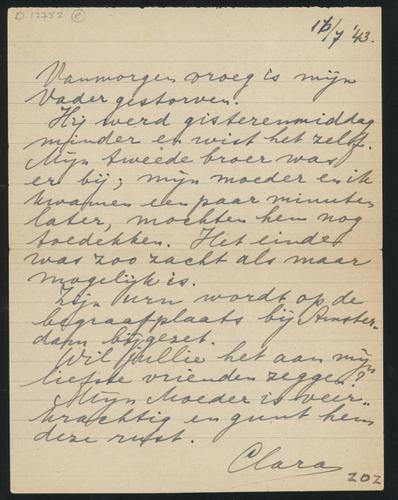 D 12752 e
16/7 '43.
Vanmorgen vroeg is mijn
Vader gestorven.
Hij werd gisterenmiddag
minder en wist het zelf.
Mijn tweede broer was
er bij; mijn moeder en ik
kwamen een paar minuten
later, mochten hem nog
toedekken. Het einde
was zoo zacht als maar
mogelijk is.
Zijn urn wordt op de
begraafplaats bij Amster-
dam bijgezet.
Wil jullie het aan mijn
liefste vrienden zeggen?
Mijn Moeder is veer-
krachtig en gunt hem
deze rust.
Clara
202